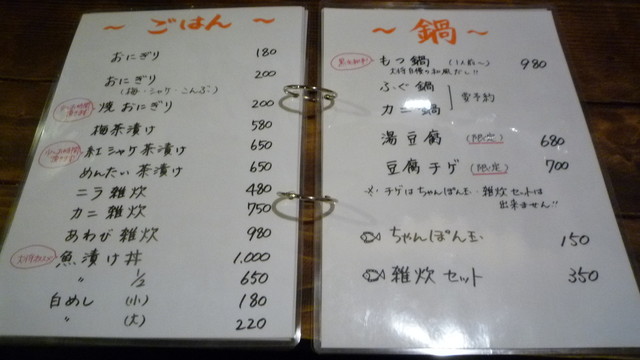 ～ ごはん ～
おにぎり 180
おにぎり 200
(梅・シャケ・こんぶ)
焼おにぎり 200
梅茶漬け 580
紅シャケ茶漬け 650
めんたい茶漬け 650
ニラ雑炊 480
カニ雑炊 750
あわび雑炊 980
魚漬け丼 1.000
〃 1/2 650
白めし (小) 180
〃 (大) 220
～ 鍋 ～
もつ鍋 (1人前～) 980
大将自慢の和風だし!!
ふぐ鍋
カニ鍋
要予約
湯豆腐 (限定) 680
豆腐チゲ (限定) 700
※ チゲはちゃんぽん玉・雑炊セットは
出来ません!!
ちゃんぽん玉 150
雑炊セット 350